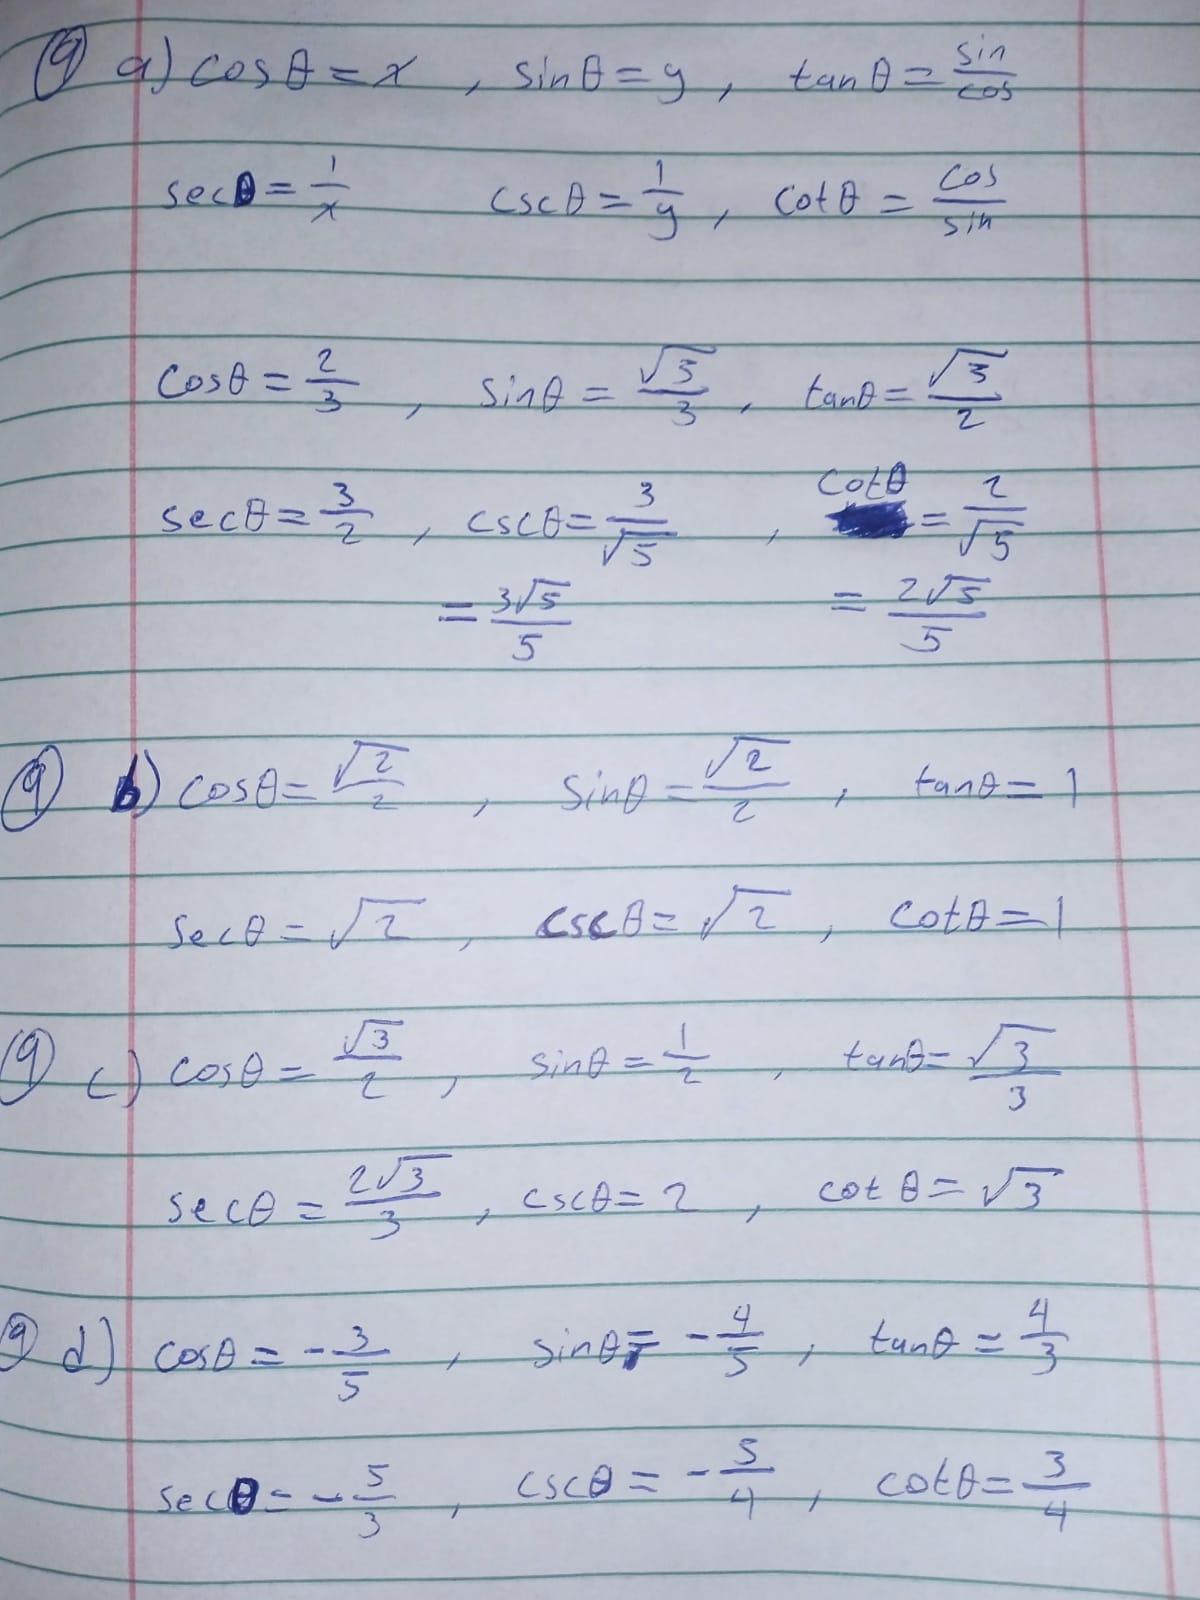 9 a) cosθ = x , sinθ = y , tanθ = sin/cos
secθ = 1/x cscθ = 1/y , cotθ = cos/sin
cosθ = 2/3 , sinθ = √5/3 , tanθ = √5/2
secθ = 3/2 , cscθ = 3/√5 , cotθ = 2/√5
= 3√5/5 = 2√5/5
9 b) cosθ = √2/2 , sinθ = √2/2 , tanθ = 1
secθ = √2 , cscθ = √2 , cotθ = 1
9 c) cosθ = √3/2 , sinθ = 1/2 , tanθ = √3/3
secθ = 2√3/3 , cscθ = 2 , cotθ = √3
9 d) cosθ = -3/5 , sinθ = -4/5 , tanθ = 4/3
secθ = -5/3 , cscθ = -5/4 , cotθ = 3/4